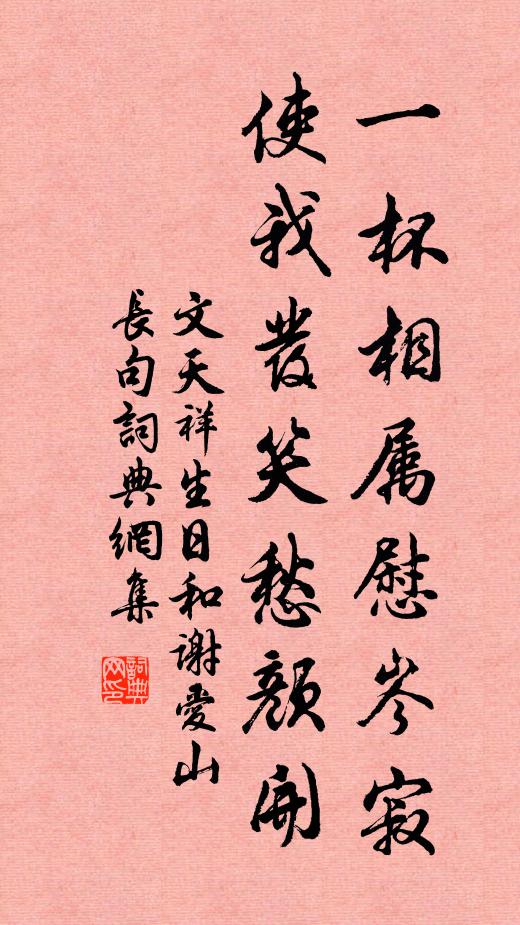 一杯相属慰岑寂
使我發笑愁顏開
文天祥生日和謝愛山
長句詞典網集
詞典網印